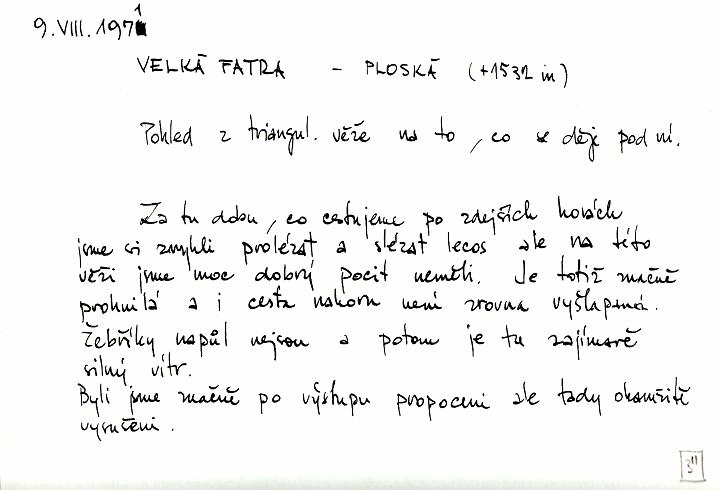 9. VIII. 1971
VELKÁ FATRA - PLOSKÁ (+1532 m)
Pohled z triangul. věže na to, co se děje pod ní.
Za tu dobu, co cestujeme po zdejších horách
jsme si zvykli prolézat a slézat lecos ale na této
věži jsme moc dobrý pocit neměli. Je totiž značně
prohnilá a i cesta nahoru není zrovna vyšlapaná.
Žebříky napůl nejsou a potom je tu zajímavě
silný vítr.
Byli jsme značně po výstupu propoceni ale tady okamžitě
vysušeni.
3"